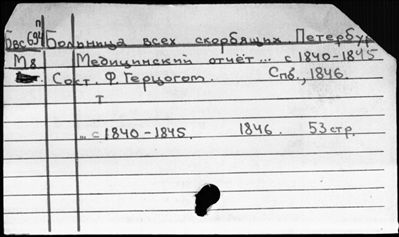 п
Бвс694 Больница всех скорбящих. Петербур
М8 Медицинский отчёт... с 1840-1845
Сост. Ф. Герцогом. Спб., 1846.
т
... с 1840-1845. 1846. 53 стр.